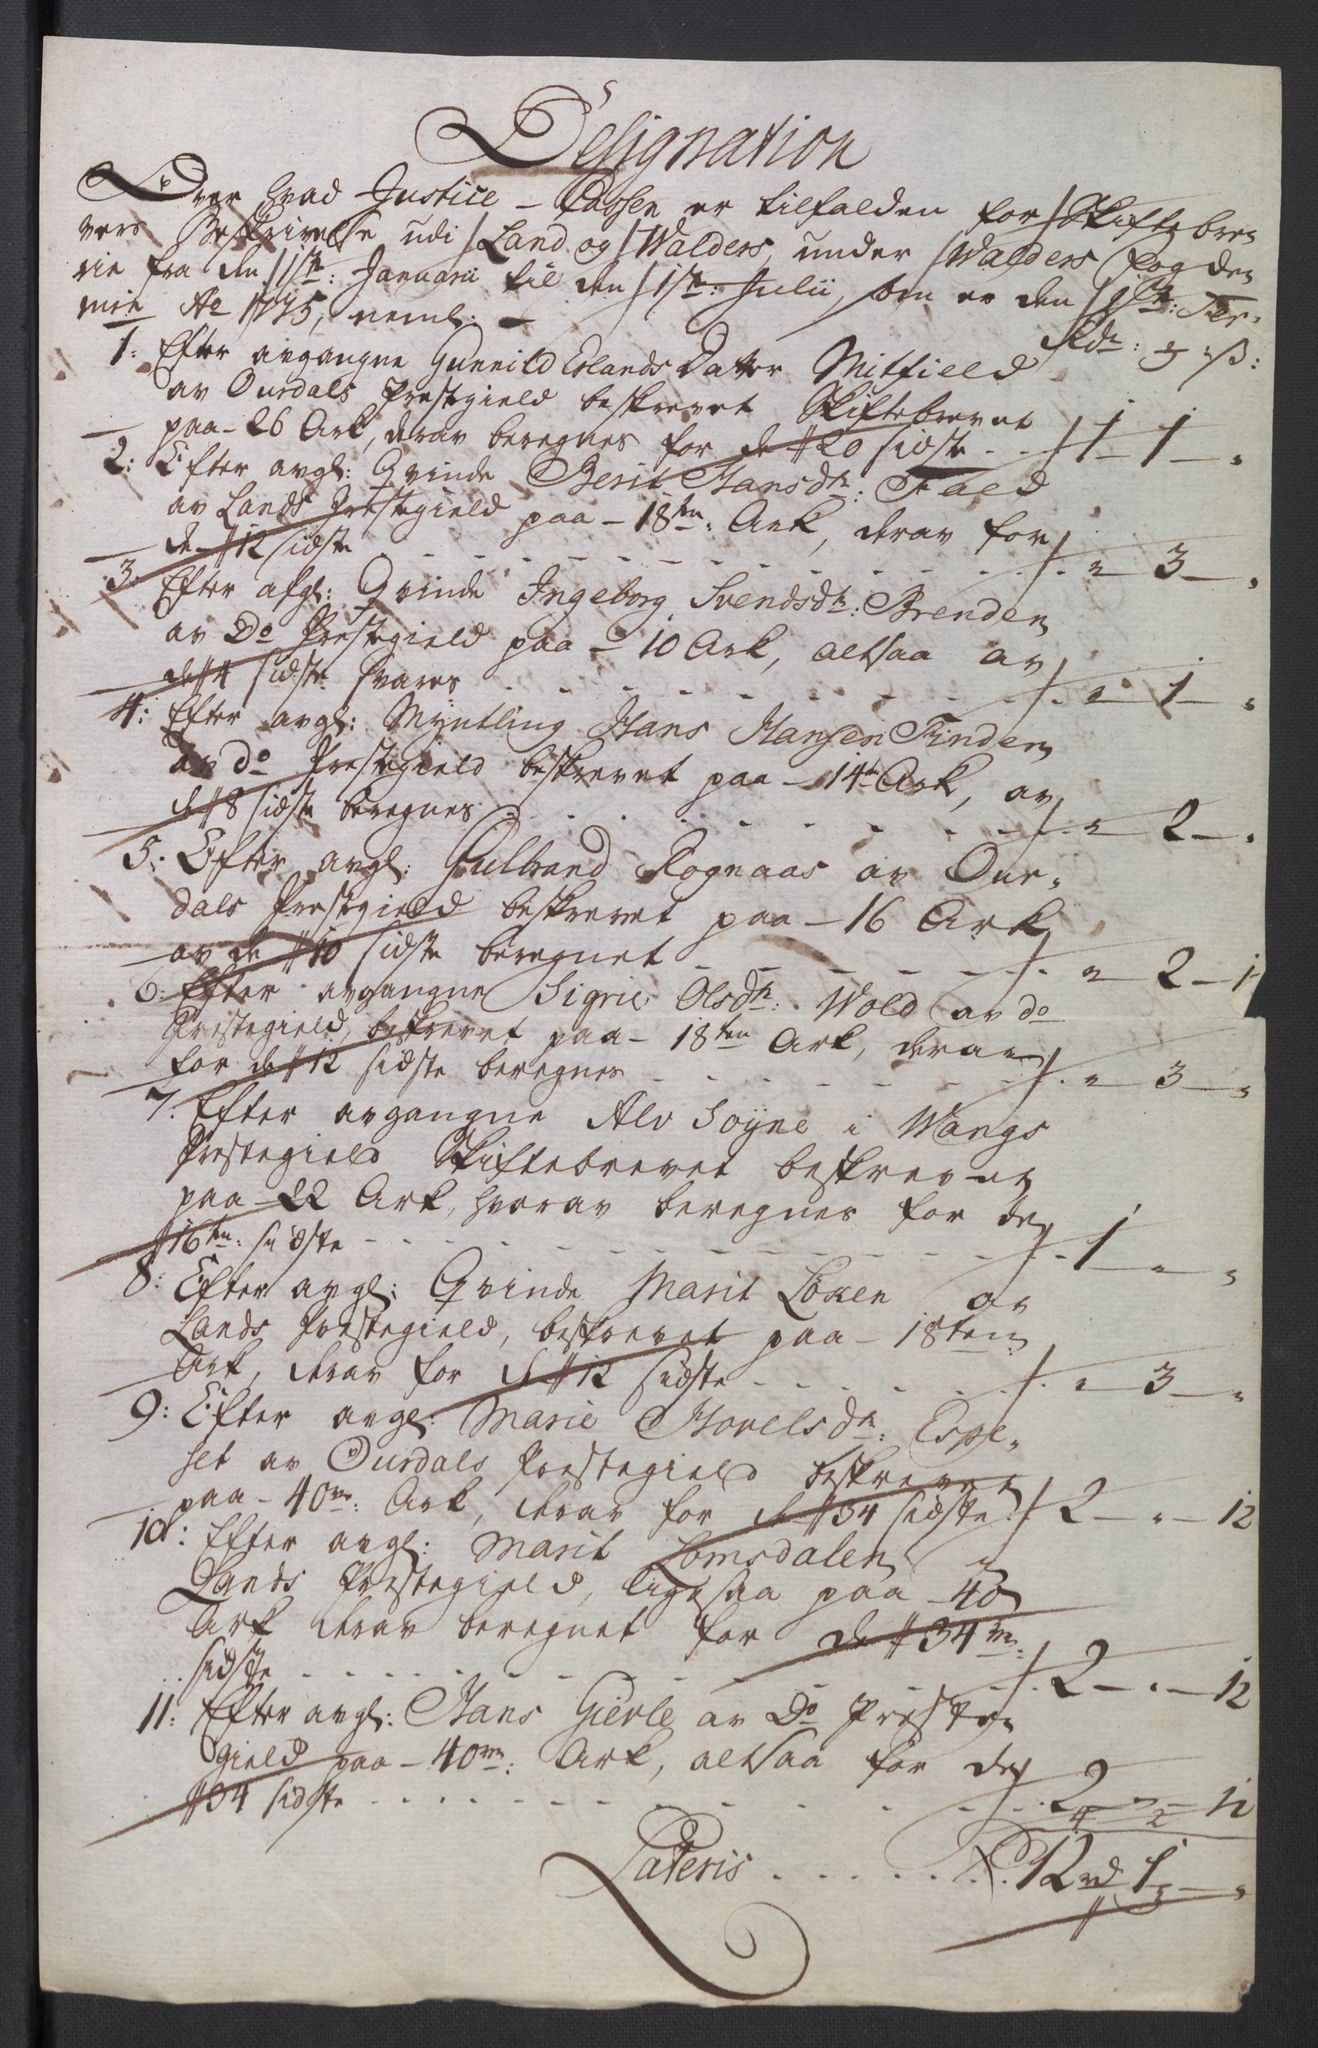 Designation
Over hvad Justice-Cassen er tilfalden for Skiftebre-
vers Beskrivelse udi Land og Walders, under Walders Fogde-
rie fra den 1ste: Januarii til den 1ste: Julii, som er den 1ste: Ter-
min Ao 1745, neml: -
Rdr: ß:
1: Efter avgangne Gunnild Eslands Datter Mitfield
av Ourdals Prestegield beskrevet Skiftebrevet
paa - 26 Ark, derav beregnes for de 20 sidste - - 1 - 1 - "
2: Efter avgl: Qvinde Berit Hansdr:
av Lands Prestegield paa - 18ten: Ark, derav for
de 12 sidste - - - " - 3 - "
3. Efter afgl: Qvinde Ingeborg Svendsdr: Brenden
av Do Prestegield paa - 10 Ark, altsaa av
de 4 sidste svares - - - " - 1 - "
4: Efter avgl: Myntling Hans Hansen Finden
av do Prestegield beskrevet paa - 14ten Ark, av
de 8 sidste beregnes - - - " - 2 - "
5: Efter avgl: Gulbrand Rognaas av Our-
dals Prestegield beskrevet paa - 16 Ark
av de 10 sidste beregnet - - - " - 2 - 1
6: Efter avgangne Sigrie Olsdr: Wold av do
Prestegield, beskrevet paa - 18ten Ark, derav
for de 12 sidste beregnes - - - " - 3 - "
7: Efter avgangne Alv Soyne i Wangs
Prestegield Skiftebrevet beskrevet
paa - 22 Ark, hvorav beregnes for de
16ten: sidste - - - 1 - " - "
8: Efter avgl: Qvinde Marit Loken av
Lands Prestegield, beskrevet paa - 18ten
Ark, derav for de 12 sidste - - - " - 3 - "
9: Efter avgl: Marie Hovelsdr: Espe-
set av Ourdals Prestegield beskrevet
paa - 40ve: Ark, derav for de 34 sidste 2 - " - 12
10: Efter avgl: Marit Lomsdalen
Lands Prestegield, ligesaa paa - 40
Ark derav beregnet for de 34ve:
sidste - - - 2 - " - 12
11: Efter avgl: Hans Gierle av Do Preste-
gield paa - 40ve: Ark, altsaa for de
34 sidste - - - 2 - " - 12
Lateris - - - 12 rd 1 - "